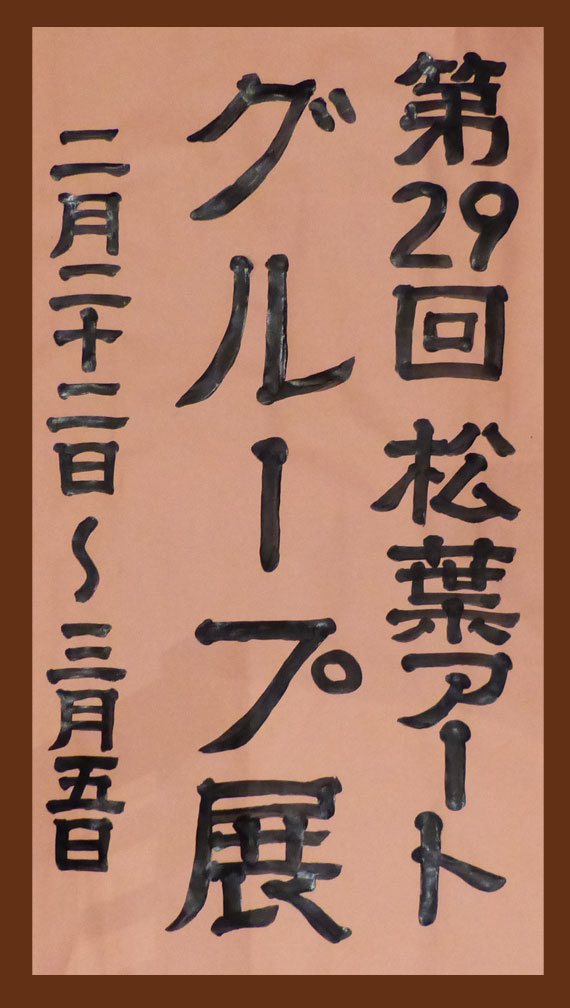 第29回松葉アート
グループ展
二月二十二日～三月五日